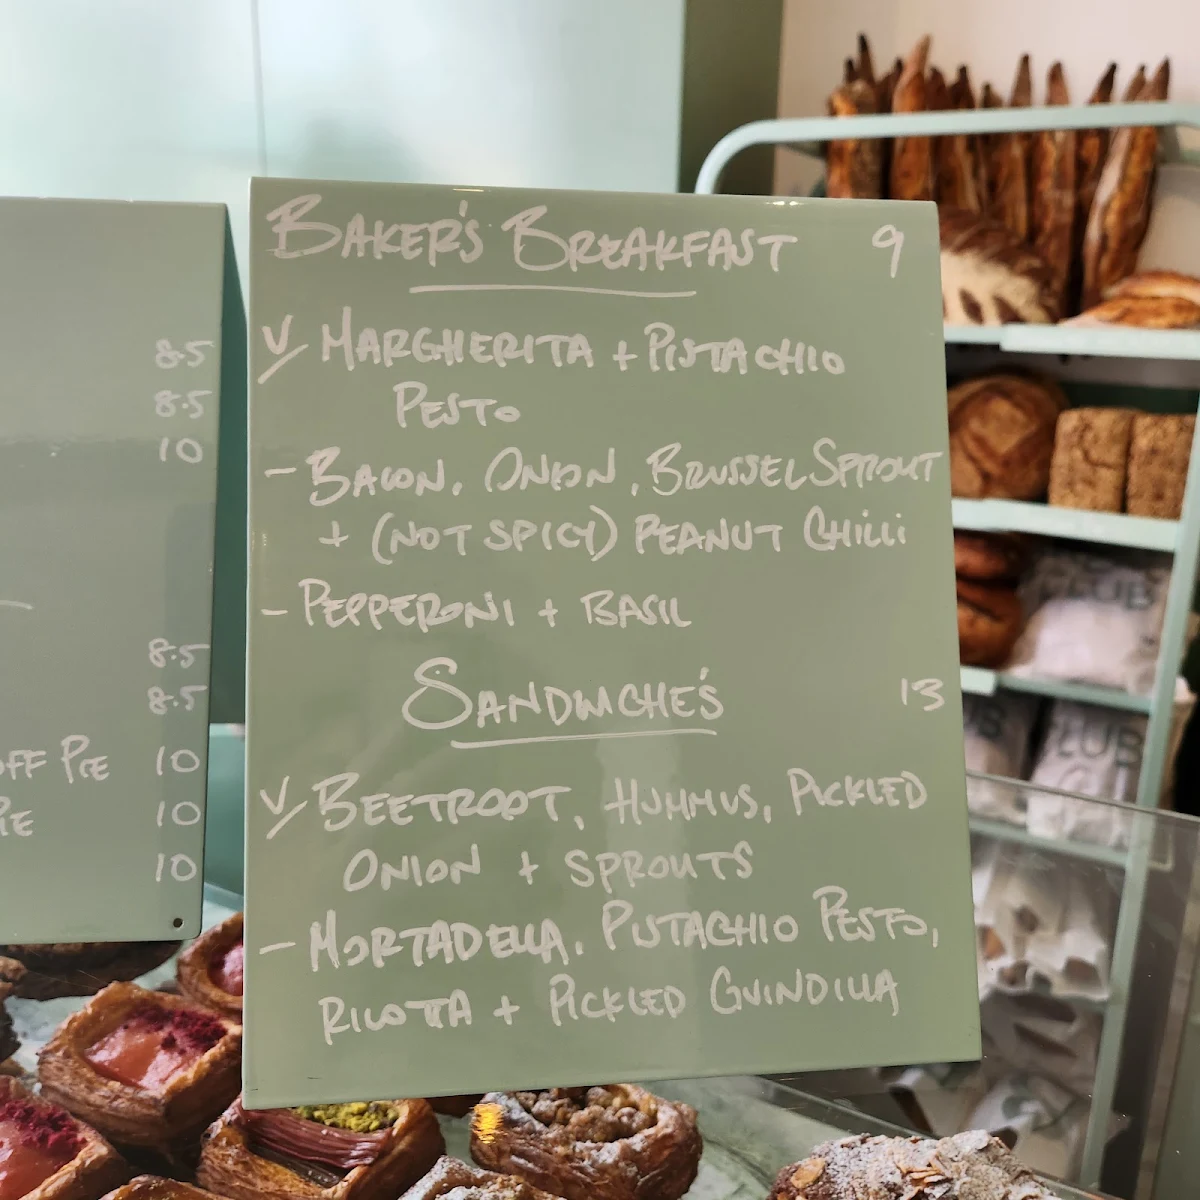 8.5
8.5
10
8.5
8.5
OFF PIE 10
PIE 10
10
BAKER'S BREAKFAST 9
V MARGHERITA + PISTACHIO
PESTO
- BACON, ONION, BRUSSEL SPROUT
+ (NOT SPICY) PEANUT CHILLI
- PEPPERONI + BASIL
SANDWICHE'S 13
V BEETROOT, HUMMUS, PICKLED
ONION + SPROUTS
- MORTADELLA, PISTACHIO PESTO,
RICOTTA + PICKLED GUINDILLA
CLUB